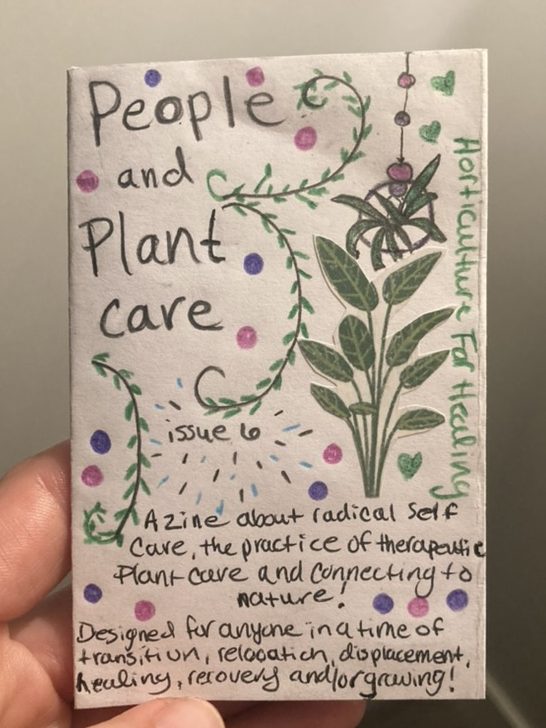 People
and
Plant
care
Horticulture For Healing
issue 6
A zine about radical Self
Care, the practice of therapeutic
Plant care and Connecting to
nature!
Designed for anyone in a time of
transition, relocation, displacement,
healing, recovery and/or growing!